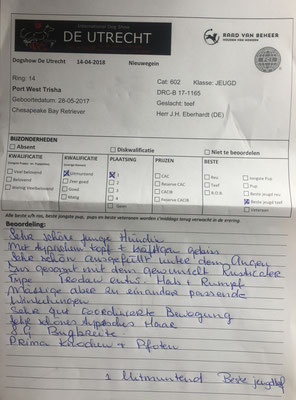 International Dog Show
DE UTRECHT
RAAD VAN BEHEER
Dogshow De Utrecht 14-04-2018 Nieuwegein
Ring: 14 Cat: 602 Klasse: JEUGD
Port West Trisha DRC-B 17-1165
Geboortedatum: 28-05-2017 Geslacht: teef
Chesapeake Bay Retriever Herr J.H. Eberhardt (DE)
BIJZONDERHEDEN
Absent Diskwalificatie Niet te beoordelen
KWALIFICATIE KWALIFICATIE PLAATSING PRIJZEN BESTE
Veel belovend Uitmuntend 1 CAC Reu Jongste Pup
Belovend Zeer goed 2 Reserve CAC Teef Pup
Weinig Veelbelovend Goed 3 CACIB B.O.B. Beste jeugd reu
Matig 4 Reserve CACIB Beste jeugd teef
Veteraan
Beoordeling:
Sehr schöne junge Hündin
Mit typischem Kopf + kräftigen Gebiss
Sehr schön ausgefüllt unter den Augen
Type Hals + Rumpf
Mäßige aber zu einander passende
Winkelungen
Sehr gut Coordinierte Bewegung
Sehr schönes typisches Haar
S.G. Brustbreite
Prima Knochen + Pfoten
1 Uitmuntend Beste jeugdteef